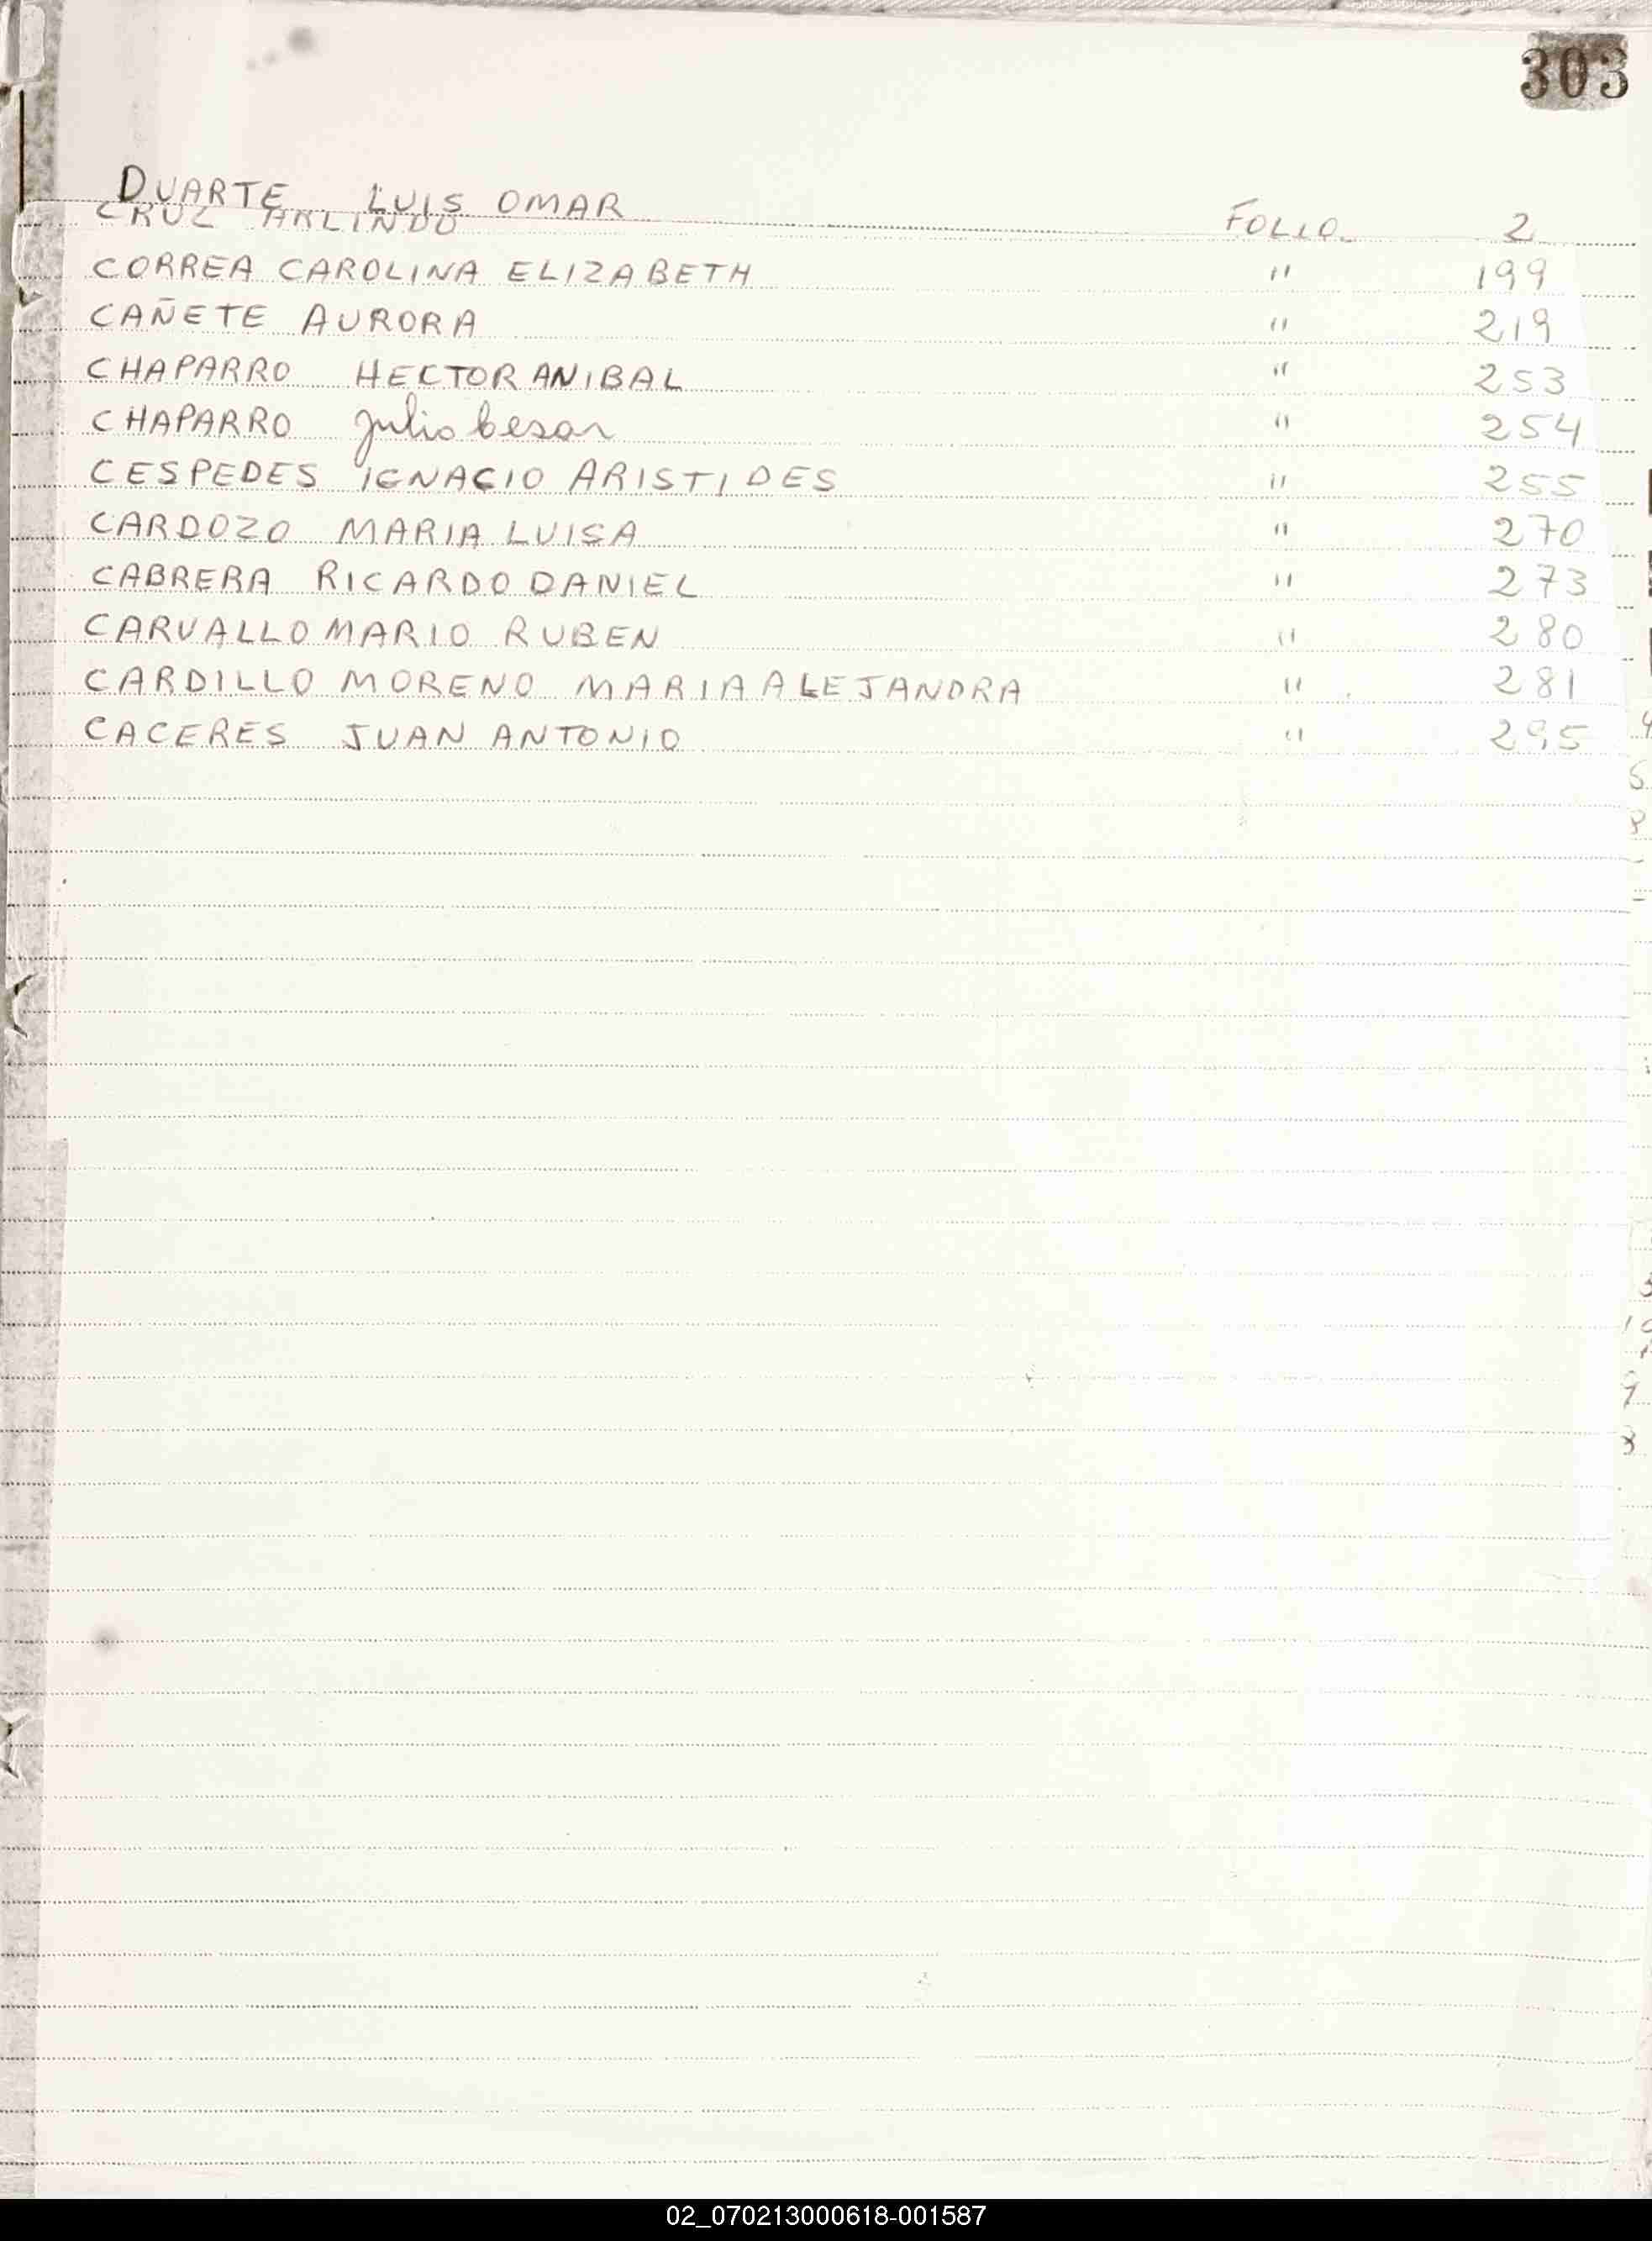 303
DUARTE LUIS OMAR FOLIO 2
CRUZ ARLINDO
CORREA CAROLINA ELIZABETH " 199
CAÑETE AURORA " 219
CHAPARRO HECTOR ANIBAL " 253
CHAPARRO Julio Cesar " 254
CESPEDES IGNACIO ARISTIDES " 255
CARDOZO MARIA LUISA " 270
CABRERA RICARDO DANIEL " 273
CARVALLO MARIO RUBEN " 280
CARDILLO MORENO MARIA ALEJANDRA " 281
CACERES JUAN ANTONIO " 295
02_070213000618-001587